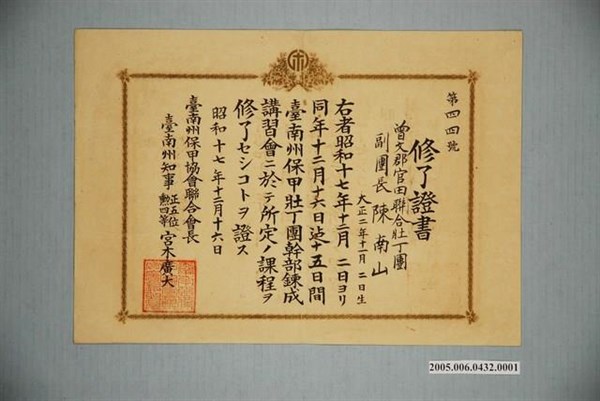 第四四號
修了證書
曾文郡官田聯合壯丁團
副團長 陳南山
大正二年十一月二日生
右者昭和十七年十二月二日ヨリ
同年十二月十六日迄十五日間
臺南州保甲壯丁團幹部鍊成
講習會ニ於テ所定ノ課程ヲ
修了セシコトヲ證ス
昭和十七年十二月十六日
臺南州保甲協會聯合會長
臺南州知事 正五位勳四等 宮木廣大
2005.006.0432.0001